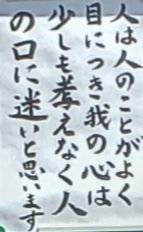 人は人のことがよく
目につき我の心は
少しも考えなく人
の口に迷いと思います